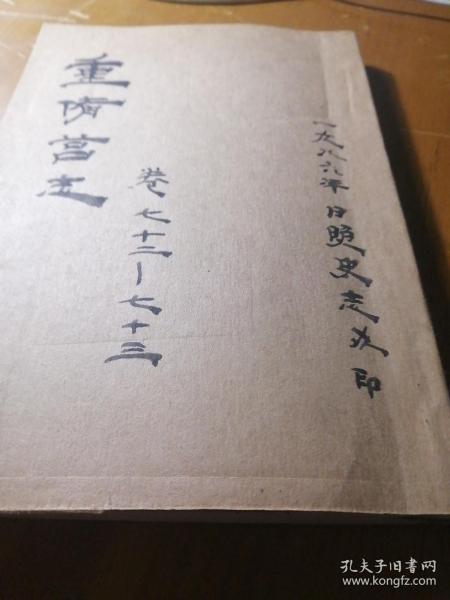 重修莒志
卷七十二—七十三
一九八六年日照史志办印
孔夫子旧书网
www.kongfz.com